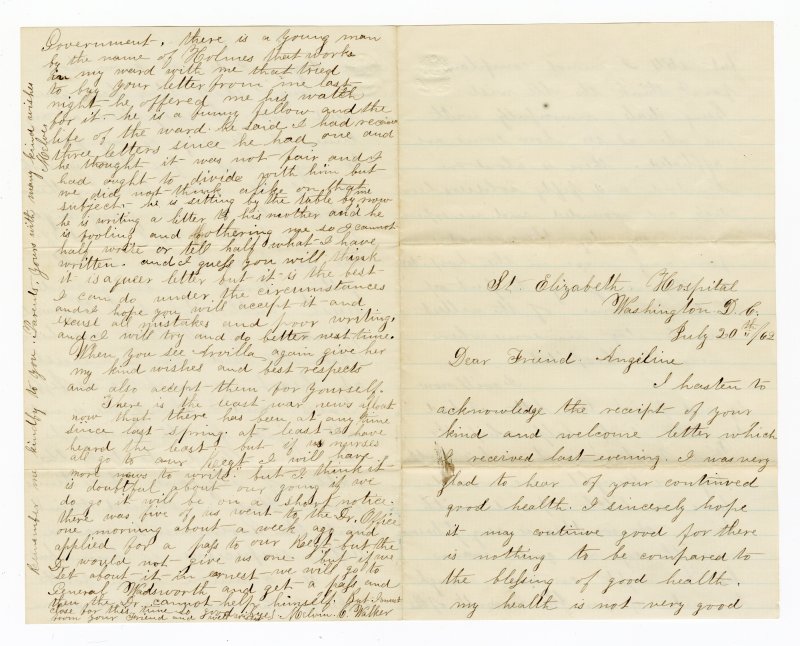 St. Elizabeth Hospital
Washington D. C.
July 20th/62
Dear Friend. Angiline
I hasten to
acknowledge the receipt of your
kind and welcome letter which
I received last evening. I was very
glad to hear of your continued
good health. I sincerely hope
it may continue good for there
is nothing to be compared to
the blessing of good health.
my health is not very good
Government. there is a young man
by the name of Holmes that works
in my ward with me that tried
to buy your letter from me last
night he offered me his watch
for it - he is a funny fellow and the
life of the ward he said I had receive
three letters since he had one and
he thought it was not fair and I
had ought to divide with him but
we did not think alike on that
subject. he is sitting by the table by me now
he is writing a letter to his mother and he
is fooling and bothering me so I cannot
half write or tell half what I have
written. and I guess you will think
it is a queer letter but it is the best
I can do under the circumstances
and I hope you will accept it and
excuse all mistakes and poor writing.
and I will try and do better next time.
When you see Arvilla again give her
my kind wishes and best respects
and also accept them for yourself.
There is the least war news afloat
now that there has been at any time
since last spring. at least I have
heard the least. but if us nurses
all go to our Regt I will have
more news to write. but I think it
is doubtful about our going if we
do go it will be on a short notice.
there was five of us went to the Dr. Office
one morning about a week ago and
applied for a pass to our Regt but the
Dr would not give us one. but if we
set about it in ernest we will go to
General Wadsworth and get a pass and
then the Dr. cannot help himself. But I must
close for this time so good bye.
from your Friend and Melvin C. Walker
Remember me kindly to you Parents. Yours with many kind wishes